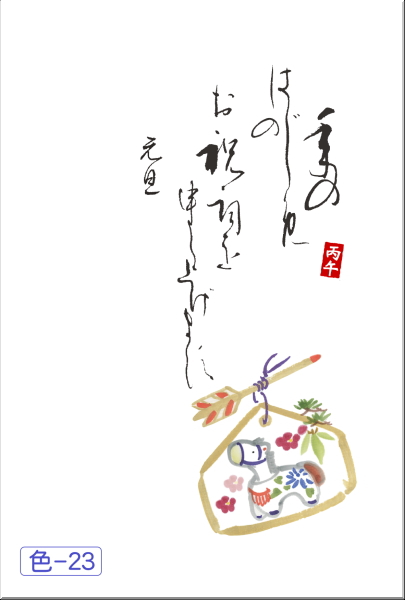 年の
はじめ
の
お祝詞を
申し上げます
元旦
丙午
色-23